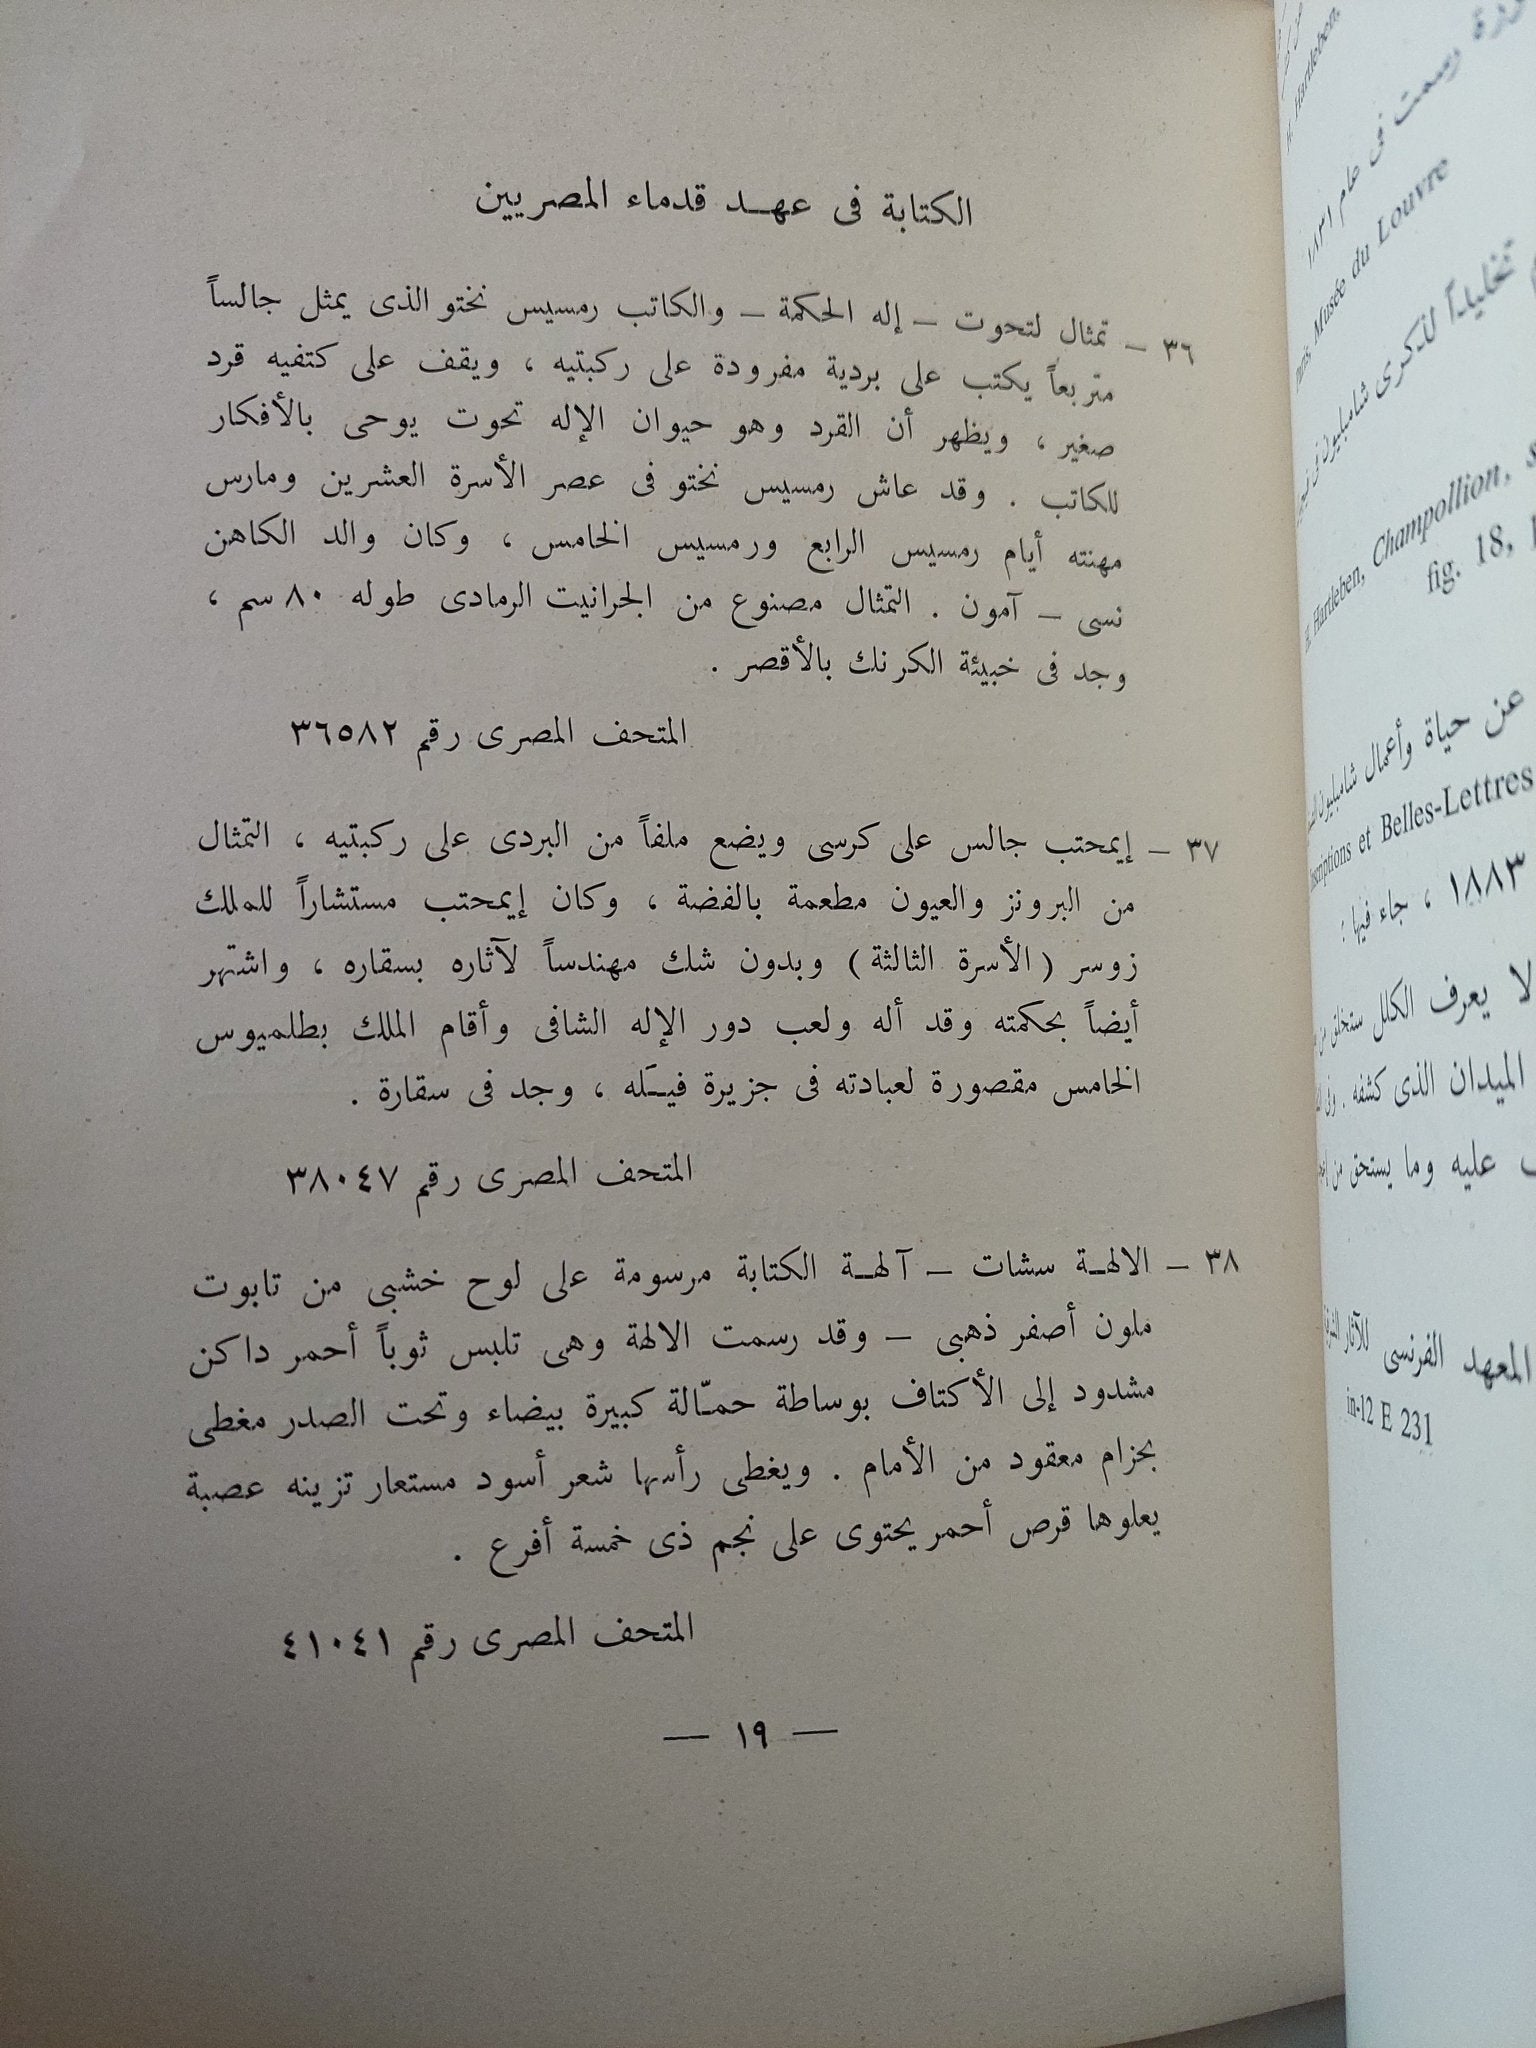 الكتابة فى عهـد قدماء المصريين
٣٦ – تمثال لتحوت – إله الحكمة – والكاتب رمسيس نختو الذى يمثل جالساً
متربعاً يكتب على بردية مفرودة على ركبتيه ، ويقف على كتفيه قرد
صغير ، ويظهر أن القرد وهو حيوان الإله تحوت يوحى بالأفكار
للكاتب . وقد عاش رمسيس نختو فى عصر الأسرة العشرين ومارس
مهنته أيام رمسيس الرابع ورمسيس الخامس ، وكان والد الكاهن
نسى – آمون . التمثال مصنوع من الجرانيت الرمادى طوله ٨٠ سم ،
وجد فى خبيئة الكرنك بالأقصر .
المتحف المصرى رقم ٣٦٥٨٢
٣٧ – إيمحتب جالس على كرسى ويضع ملفاً من البردى على ركبتيه ، التمثال
من البرونز والعيون مطعمة بالفضة ، وكان إيمحتب مستشاراً للملك
زوسر ( الأسرة الثالثة ) وبدون شك مهندساً لآثاره بسقاره ، واشتهر
أيضاً بحكمته وقد أله ولعب دور الإله الشافى وأقام الملك بطلميوس
الخامس مقصورة لعبادته فى جزيرة فيـَله ، وجد فى سقارة .
المتحف المصرى رقم ٣٨٠٤٧
٣٨ – الالهـة سشات – آلهـة الكتابة مرسومة على لوح خشبى من تابوت
ملون أصفر ذهبى – وقد رسمت الالهة وهى تلبس ثوباً أحمر داكن
مشدود إلى الأكتاف بوساطة حمـّالة كبيرة بيضاء وتحت الصدر مغطى
بحزام معقود من الأمام . ويغطى رأسها شعر أسود مستعار تزينه عصبة
يعلوها قرص أحمر يحتوى على نجم ذى خمسة أفرع .
المتحف المصرى رقم ٤١٠٤١
— ١٩ —
H. Hartleben,
رسمت فى عام ١٨٣١
Musée du Louvre
تخليداً لذكرى شامبليون فى
H. Hartleben, Champollion,
fig. 18,
عن حياة وأعمال شامبليون
et Belles-Lettres
١٨٨٣ ، جاء فيها :
لا يعرف الكلل ستخلق من
الميدان الذى كشفه .
عليه وما يستحق من
المعهد الفرنسى للآثار الشرقية
in-12 E 231